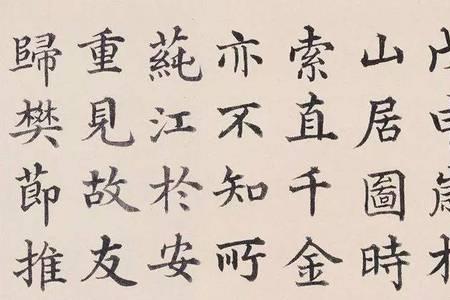 山居圖時
索直千金
亦不知所
蒓江於安
重見故友
歸樊節推